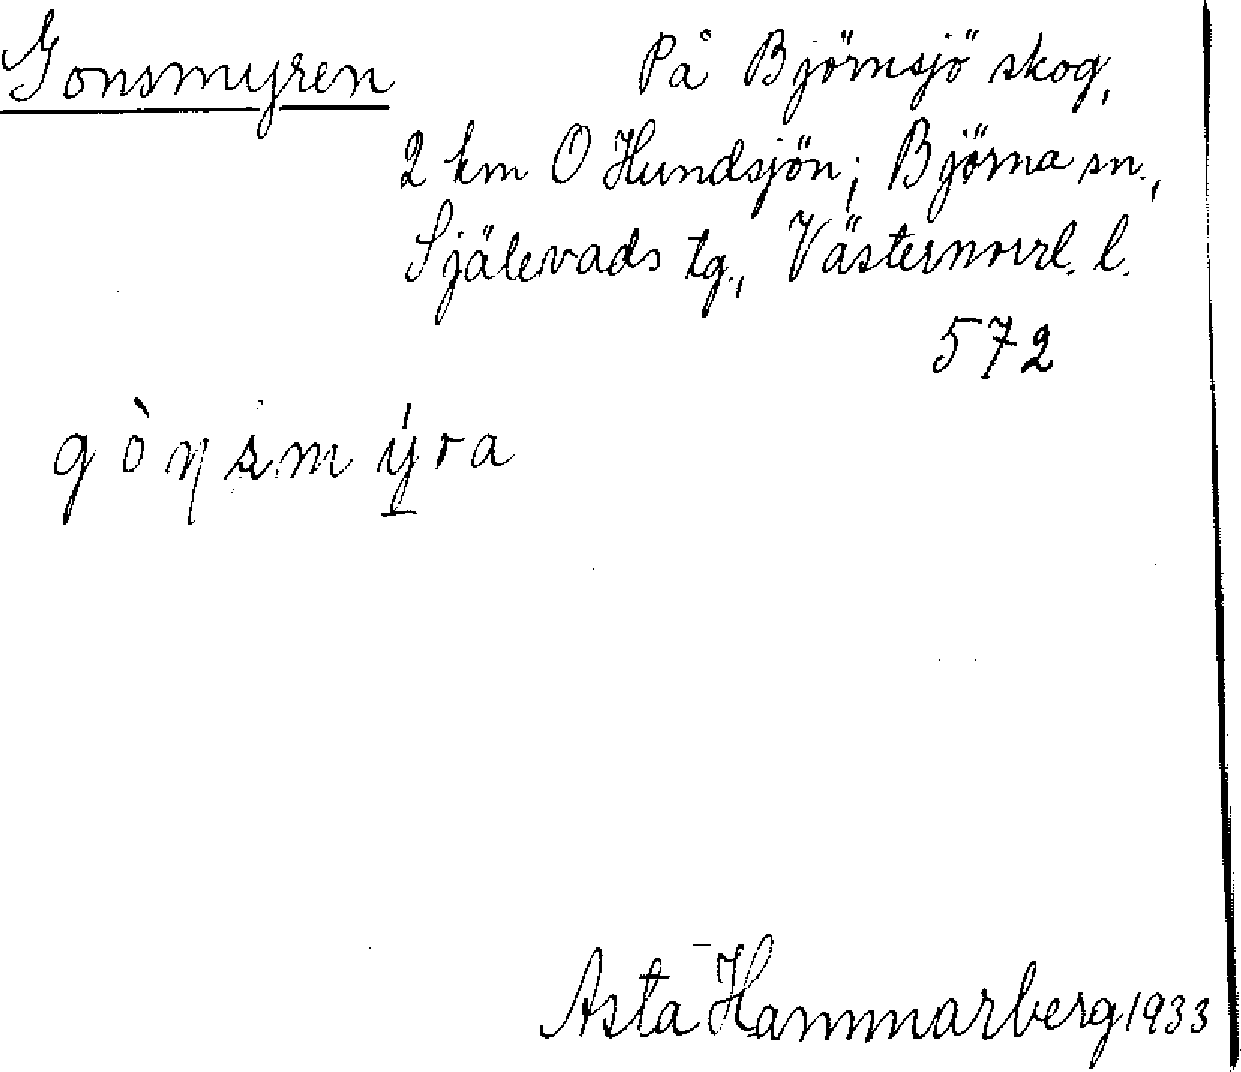 Gonsmyren
På Björnsjö skog,
2 km O Hundsjön; Björna sn.,
Själevads tg., Västernorrl. l.
572
gòŋsmýra
Asta Hammarberg 1933